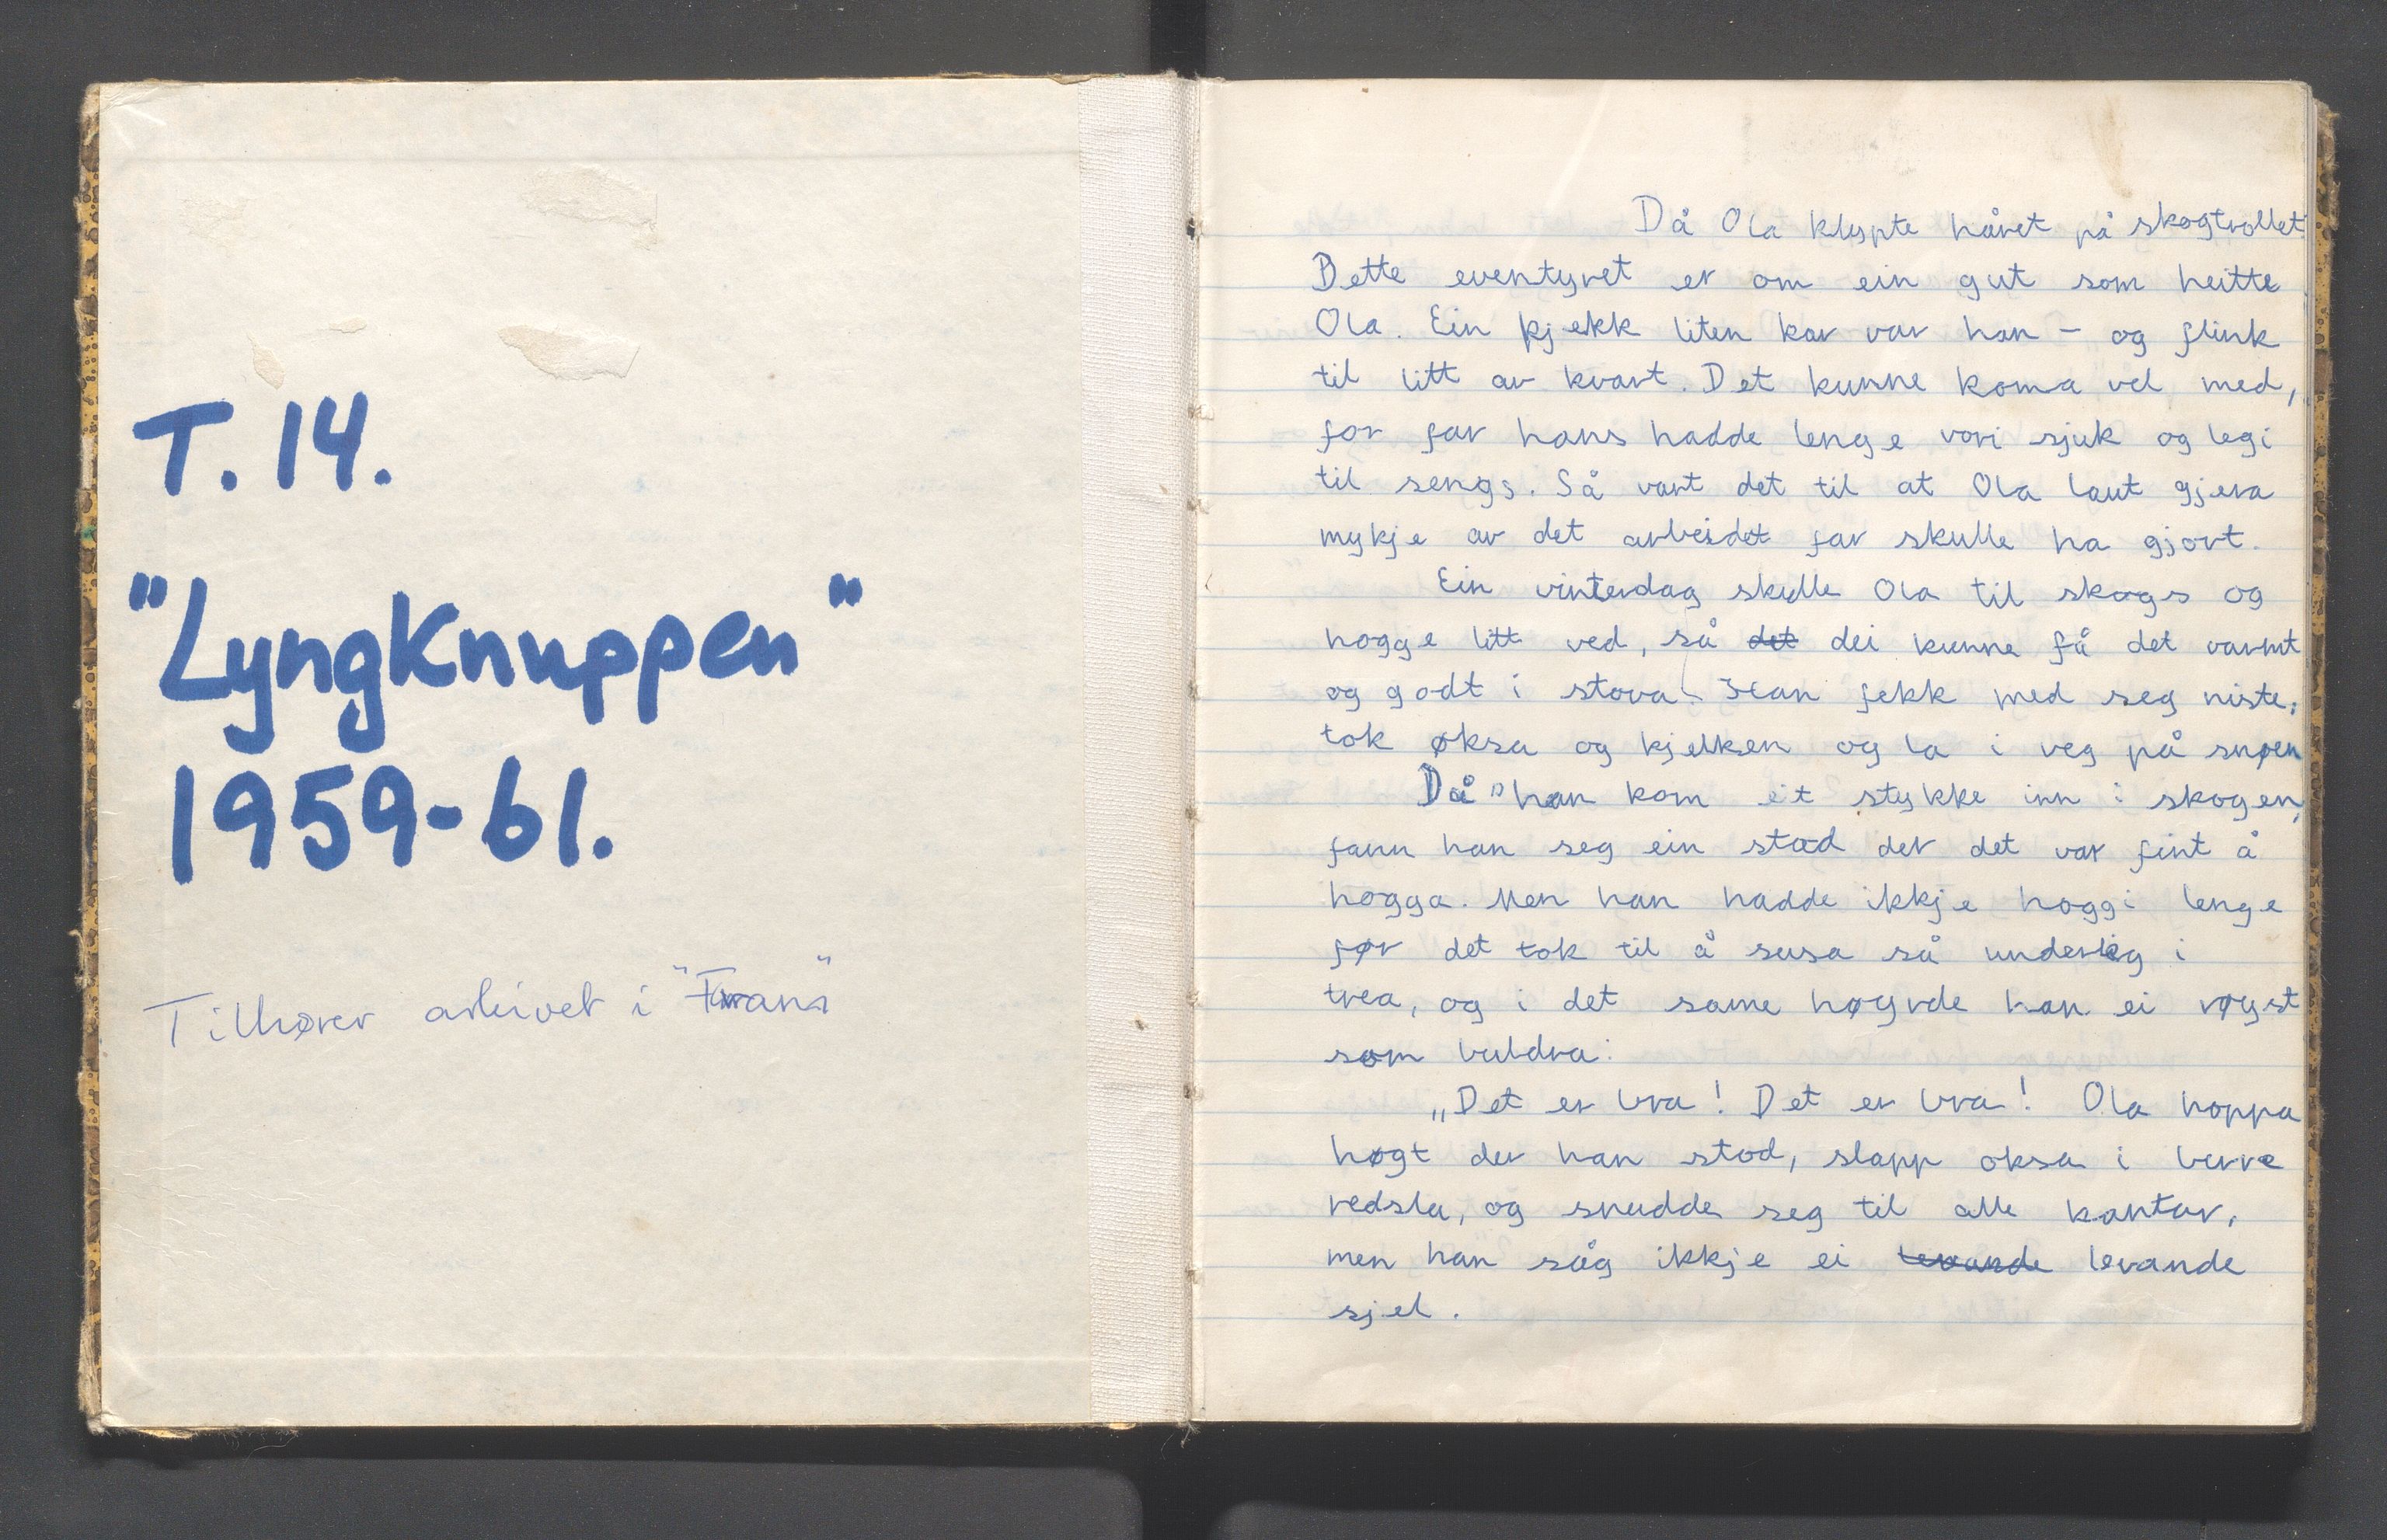 T. 14.
"Lyngknuppen"
1959-61.
Tilhører arkivet i "Frans"
Då Ola klypte håret på skogtrollet
Dette eventyret er om ein gut som heitte
Ola. Ein kjekk liten kar var han - og flink
til litt av kvart. Det kunne koma vel med,
for far hans hadde lenge vori sjuk og legi
til sengs. Så vart det til at Ola laut gjera
mykje av det arbeidet far skulle ha gjort.
Ein vinterdag skulle Ola til skogs og
hogge litt ved, så det dei kunne få det varmt
og godt i stova. Han fekk med seg niste,
tok øksa og kjelken og la i veg på snøen
Då han kom eit stykke inn i skogen,
fann han seg ein stad der det var fint å
hogga. Men han hadde ikkje hoggi lenge
før det tok til å susa så underleg i
trea, og i det same høyrde han ei røyst
som buldra:
„Det er bra! Det er bra! Ola hoppa
høgt der han stod, slapp oksa i berre
redsla, og snudde seg til alle kantar,
men han såg ikkje ei levande levande
sjel.